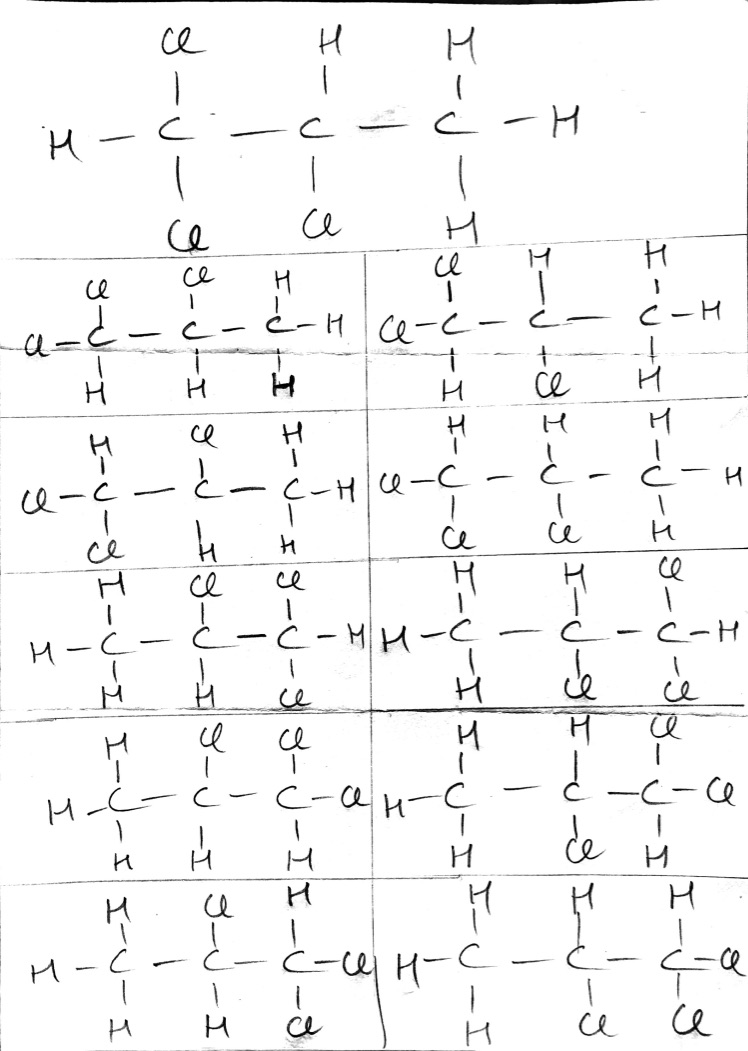 Cl H H
H – C – C – C – H
Cl Cl H
Cl Cl H
Cl – C – C – C – H
H H H
Cl H H
Cl – C – C – C – H
H Cl H
H Cl H
Cl – C – C – C – H
Cl H H
H H H
Cl – C – C – C – H
Cl Cl H
H Cl Cl
H – C – C – C – H
H H Cl
H H Cl
H – C – C – C – H
H Cl Cl
H Cl Cl
H – C – C – C – Cl
H H H
H H Cl
H – C – C – C – Cl
H Cl H
H Cl H
H – C – C – C – Cl
H H Cl
H H H
H – C – C – C – Cl
H Cl Cl